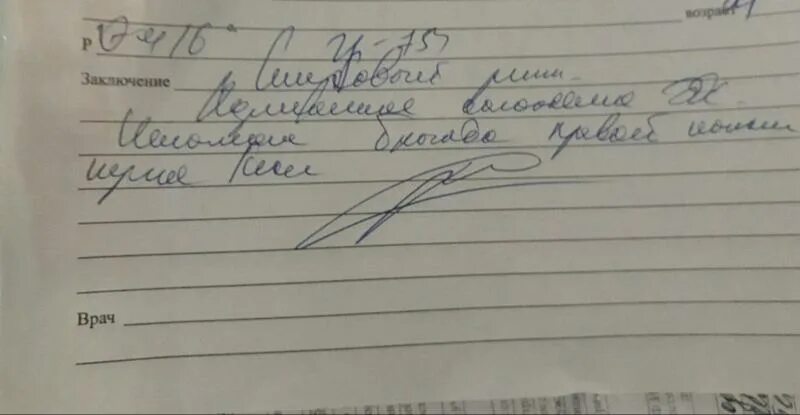 возраст
Р
Заключение Синусовый ритм.
Нормальное положение ЭОС.
Неполная блокада правой ножки
пучка Гиса
Врач